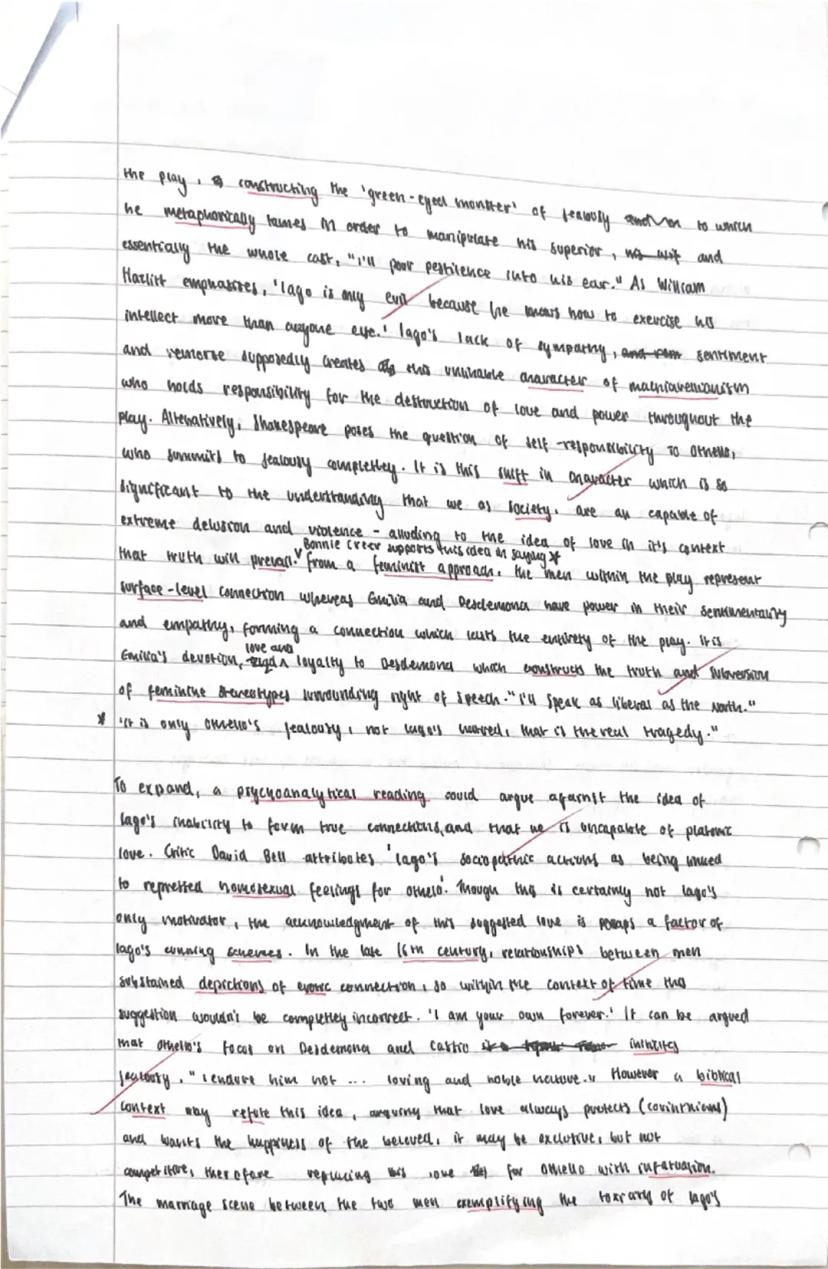 the play, constructing the 'green-eyed monster' of jealousy to which
he metaphorically tames in order to manipulate his superior, and
essentially the whole cast, "I'll pour pestilence into his ear." As William
Hazlitt emphasises, 'Iago is only evil because he knows how to exercise his
intellect more than anyone else.' Iago's lack of sympathy, sentiment
and remorse supposedly creates this unlikable character of machiavellianism
who holds responsibility for the destruction of love and power throughout the
play. Alternatively, Shakespeare poses the question of self-responsibility to Othello,
who summits to jealousy completley. It is this shift in character which is so
significant to the understanding that we as society, are all capable of
extreme delusion and violence - alluding to the idea of love in it's context
Bonnie Greer supports this idea in saying *
that truth will prevail. From a feminist approach, the men within the play represent
surface-level connection whereas Emilia and Desdemona have power in their sentimentality
and empathy, forming a connection which lasts the entirety of the play. It is
love and
Emilia's devotion, loyalty to Desdemona which constructs the truth and subversion
of feminine stereotypes surrounding right of speech. "I'll speak as liberal as the North."
* 'it is only Othello's jealousy, not Iago's hatred, that is the real tragedy."
To expand, a psychoanalytical reading could argue against the idea of
Iago's inability to form true connections, and that he is uncapable of platonic
love. Critic David Bell attributes 'Iago's sociopathic actions as being linked
to repressed homosexual feelings for Othello'. Though this is certainly not Iago's
only motivator, the acknowledgment of this suggested love is perhaps a factor of
Iago's cunning schemes. In the late 16th century, relationships between men
substained depictions of erotic connection, so within the context of time this
suggestion wouldn't be completley incorrect. 'I am your own forever.' It can be argued
that Othello's focus on Desdemona and Cassio initiates
jealousy. "I endure him not ... loving and noble nature." However a biblical
context may refute this idea, arguing that love always protects (corinthians)
and wants the happiness of the beloved, it may be exclusive, but not
competitive, therefore replacing his love for Othello with infatuation.
The marriage scene between the two men exemplifying the toxicity of Iago's